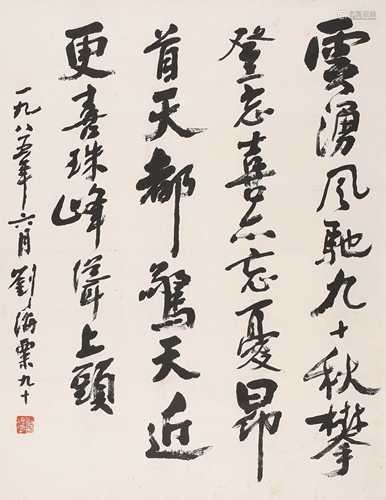 雲湧風馳九十秋攀
登忘喜亦忘憂昂
首天都驚天近
更喜珠峰聳上頭
一九八五年六月劉海粟九十